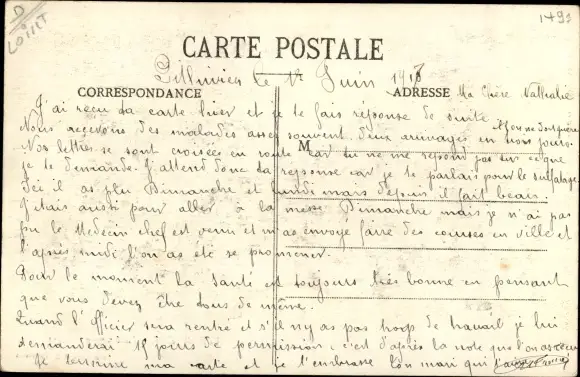 D
LOIRET
1493
CARTE POSTALE
Pithiviers le 1r Juin 1917
CORRESPONDANCE
ADRESSE
Ma Chère Nathalie
J'ai reçu ta carte hier et je te fais réponse de suite
Nous recevons des malades assez souvent deux arrivages en
jours.
M
Nos lettres se sont croisées en route car tu ne me répond pas sur ce que
je te demande. J'attend donc ta reponse car je te parlais pour le sulfatage
Ici il as plu Dimanche et lundi mais depuis il fait beau.
J'étais aussi pour aller à la messe Dimanche mais je n'ai pas
pu le Médecin chef est venu et m'as envoyé faire des courses en ville et
l'après midi l'on as été se promener.
Pour le moment la santé est toujours très bonne en pensant
que vous devez être tous de même.
Quand l'officier sera rentré et s'il n'y as pas trop de travail je lui
demanderai 15 jours de permission, c'est d'après la note que l'on as reçu
Je termine ma carte et je t'embrasse ton mari qui t'aime